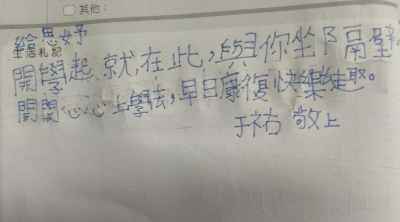 其他：
給思妤
生活札記
開學起,就在此,與你坐下隔壁
開開心心上學去,早日康復快樂
于祐 敬上